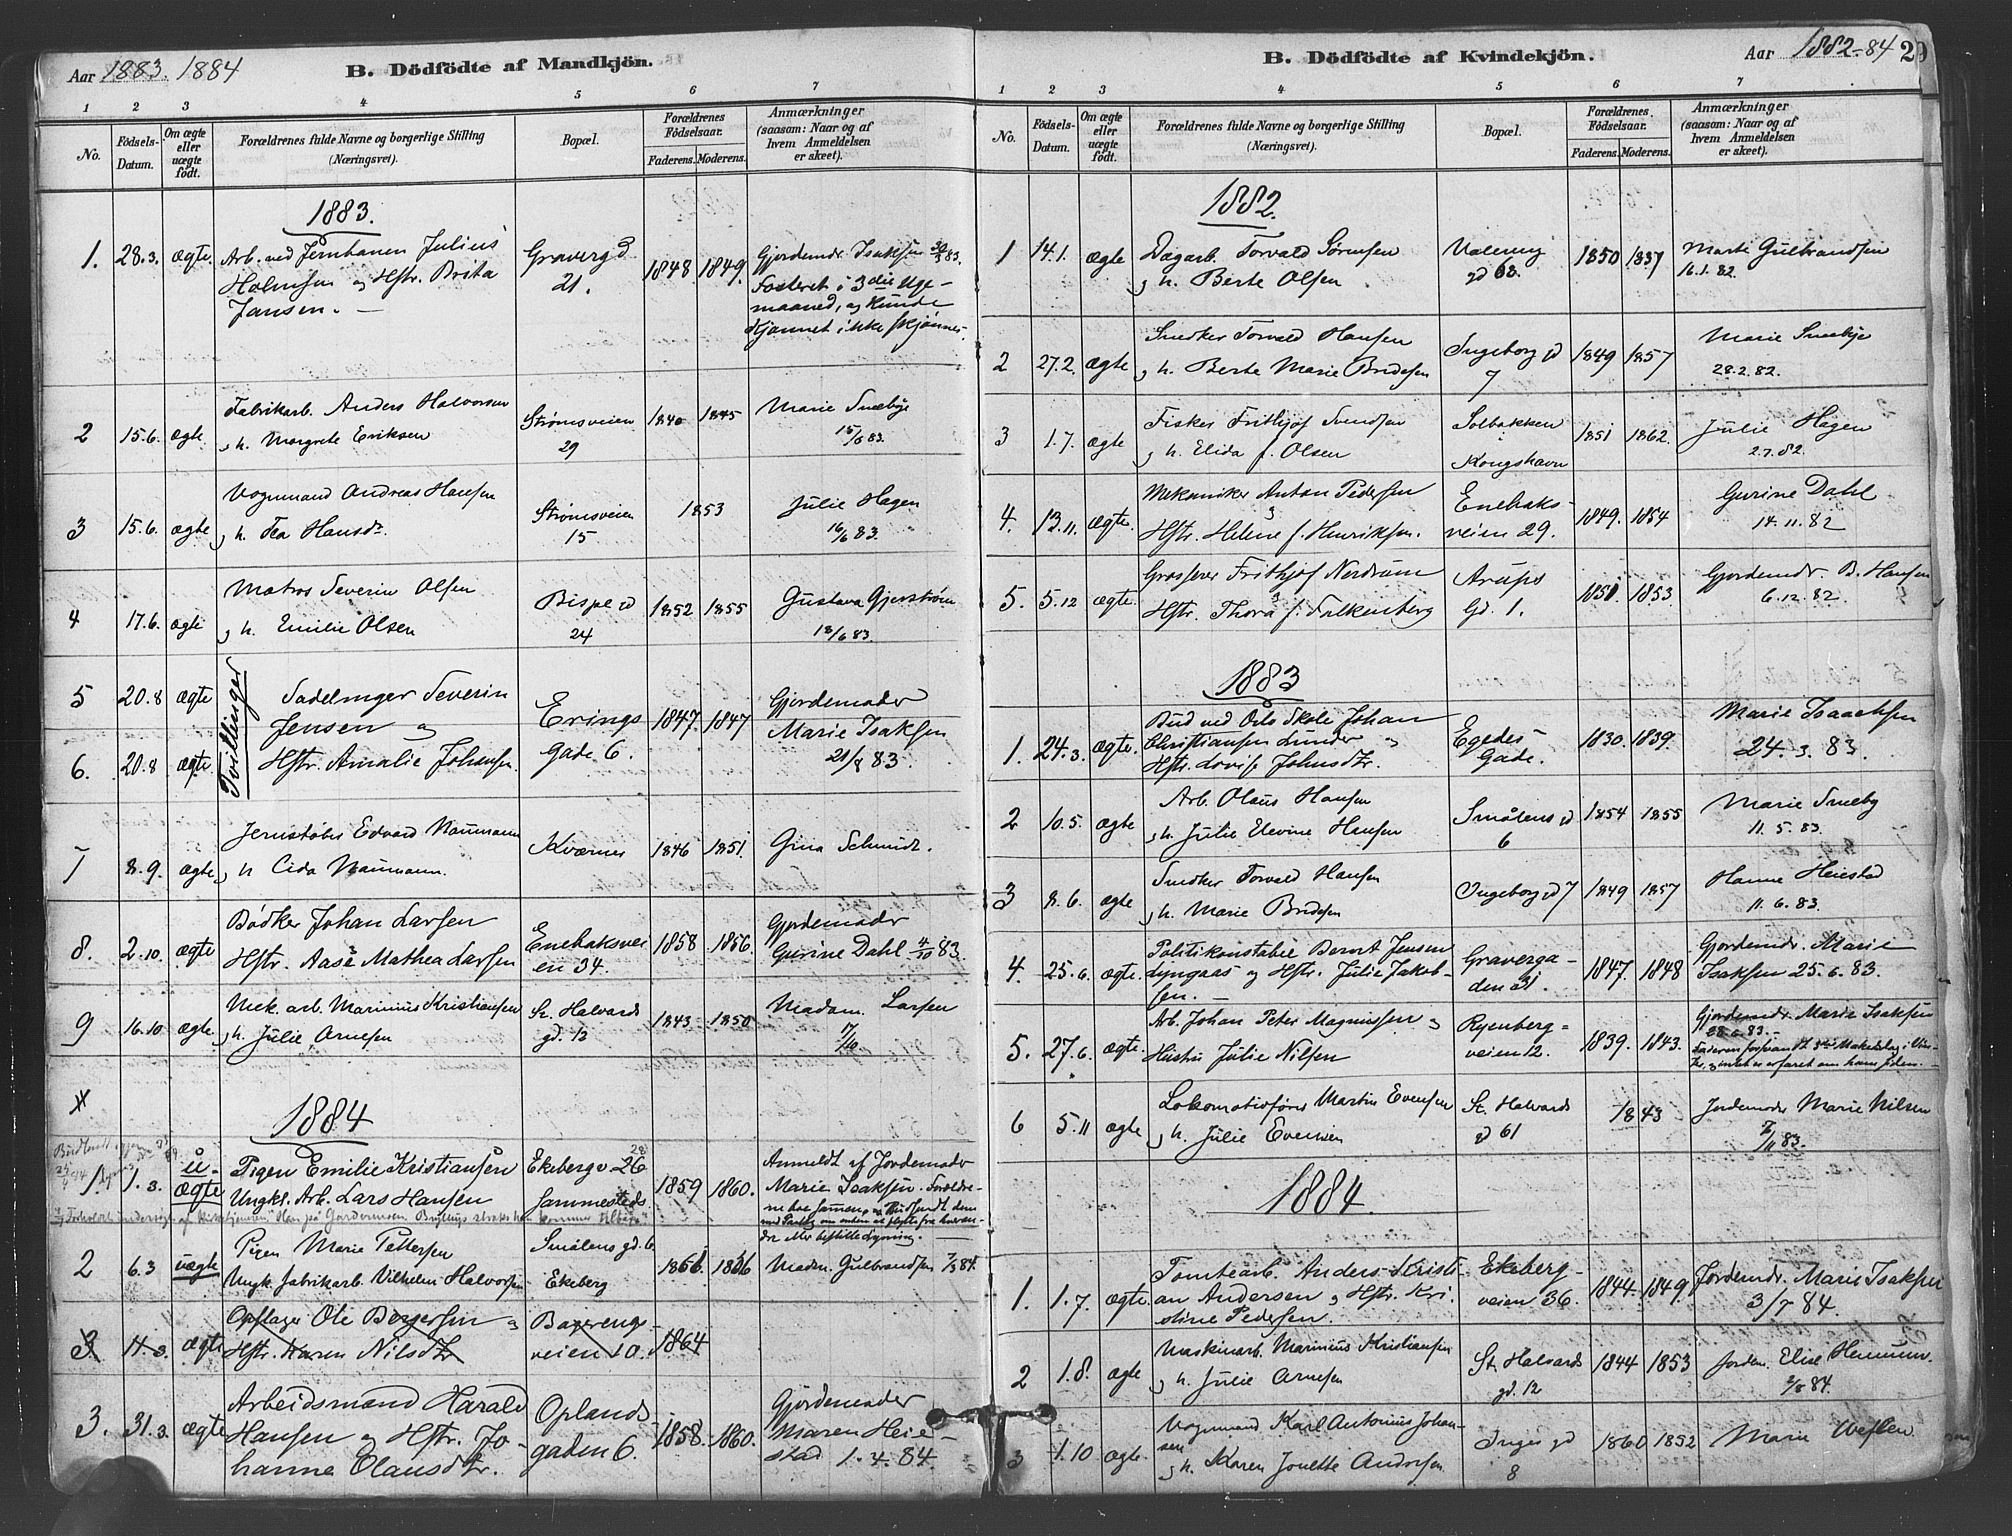 Aar 1883. 1884
B. Dödfödte af Mandkjön.
1 2 3 4 5 6 7
No.
Födsels-Datum.
Om ægte eller uægte födt.
Forældrenes fulde Navne og borgerlige Stilling (Næringsvei).
Bopæl.
Forældrenes Födselsaar.
Faderens. Moderens.
Anmærkninger (saasom: Naar og af hvem Anmeldelsen er skeet).
1883.
1. 28.3. ægte. Arb. ved Jernbanen Julius Gravergd 1848 1849. Gjordemdr Isaksen 83.
Holmsen og Hstr. Brita 21. Fosteret i 3die Uge-
Jansen. maaned, og kunde
Kjønnet ikke skjønnes.
2 15.6. ægte Fabrikarb. Anders Halvorsen Strømsveien 1840 1845 Marie Smebye
og h. Margrete Eriksen 29 15/6 83.
3 15.6. ægte Vognmand Andreas Hansen Strømsveien 1853 Julie Hagen
og h. Tea Hansdr. 15 16/6 83.
4 17.6. ægte Matros Severin Olsen Bispegd 1852 1855 Gustava Gjerstrøm
og h. Emilie Olsen 24 18/6 83.
Tvillinger
5 20.8 ægte Sadelmager Severin Erings 1847. 1847 Gjordemoder
Jensen og gade 6. Marie Isaksen
6. 20.8 ægte Hstr. Amalie Johansen. 21/8 83.
7 8.9. ægte Jernstøber Edvard Naumann Kværner 1846 1851. Gina Schmidt.
og h Cida Naumann.
8. 2.10. ægte Bødker Johan Larsen Enebaksvei 1858 1856. Gjordemoder
Hstr. Aase Mathea Larsen en 34. Gurine Dahl 4/10 83.
9 16.10 ægte Mek. arb. Marinius Kristiansen St. Halvards 1843 1850 Madam Larsen
og h. Julie Arnesen gd. 12 17/10
1884
1. 1.3. u-ægte Pigen Emilie Kristiansen Ekebergv 26 1859 1860. Anmeldt af Jordemoder
Ungk. Arb. Lars Hansen Sammesteds Marie Isaksen. Forældre-
2 6.3 uægte Pigen Marie Pettersen Smålens gd. 6 Madm. Gulbrandsen 7/3 84.
Ungk. fabrikarb. Vilhelm Halvorsen Ekeberg
3 11.3. ægte Opslager Ole Bergersen og 1864
Hstr. Karen Nilsdtr veien 10.
3. 31.3 ægte Arbeidsmand Harald Oplands- 1858. 1860. Gjordemoder
Hansen og Hstr. Jo- gaden 6. Maren Heie-
hanne Olausdtr. stad 1.4.84.
B. Dödfödte af Kvindekjön.
Aar 1882-84
29
1 2 3 4 5 6 7
No.
Födsels-Datum.
Om ægte eller uægte födt.
Forældrenes fulde Navne og borgerlige Stilling (Næringsvei).
Bopæl.
Forældrenes Födselsaar.
Faderens. Moderens.
Anmærkninger (saasom: Naar og af hvem Anmeldelsen er skeet).
1882.
1 14.1. ægte Dagarb. Torvald Sørensen Valereng 1850 1837 Marte Gulbrandsen
og h. Berte Olsen gd 16.1.82.
2 27.2. ægte Smedker Torvald Hansen Ingeborg gd 1849 1857 Marie Smebye
og h. Berte Marie Bredesen 7 28.2.82.
3 1.7. ægte Fisker Frithjof Svendsen Solbakken 1851 1862. Julie Hagen
og h. Elida f. Olsen Kongshavn 2.7.82.
4. 13.11. ægte. Mekaniker Anton Pedersen Enebaks- 1849. 1854 Gurine Dahl
Hstr. Helene f. Henriksen. veien 29. 14.11.82
5. 5.12 ægte. Grosserer Frithjof Nordrum Arups 1851. 1853. Gjordemdr. B. Hansen
Hstr. Thora f. Falkenberg Gd. 1. 6.12.82.
1883
1. 24.3. ægte. Bud ved Oslo Skole Johan Egedes- 1830. 1839. Marie Isaachsen
Christiansen Lunder og Gade. 24.3.83.
Hstr. Lovise Johnsdtr.
2 10.5. ægte Arb. Olaus Hansen Smålens gd 1854 1855 Marie Smeby
og h. Julie Elevine Hansen 6 11.5.83.
3 8.6. ægte Smedker Torvald Hansen Ingeborg gd 7 1849 1857 Hanne Heiestad
og h. Marie Bredesen 11.6.83.
4. 25.6. ægte. Politikonstabel Berort Jensen Graverga- 1847. 1848 Gjordemdr. Marie
Lyngaas og Hstr. Julie Jakob- den 31. Isaksen 25.6.83.
sen.
5. 27.6. ægte. Arb. Johan Peter Magnussen og Ryenberg- 1839. 1843. Gjordemdr. Marie Isaksen
Hustru Julie Nilsen veien 12. 28.6.83.
6 5.11 ægte Lokomotivfører Martin Evensen St. Halvards 1843 Jordemoder Marie Nilsen
og h. Julie Evensen gd 61 7/11 83.
1884.
1. 1.7. ægte. Tomtearb. Anders Kristi- Ekeberg- 1844. 1849. Jordemdr. Marie Isaksen
an Andersen og Hstr. Kri- veien 36. 3/7 84.
stine Pedersen.
2 1.8. ægte Maskinarb. Marinius Kristiansen St. Halvards 1844 1853 Jordem. Elise
og h. Julie Arnesen gd. 12 2/8 84.
3 1.10 ægte. Vognmand Karl Antonius Johan- Inges gd 1860 1852 Marie Weflen
sen
og h. Karen Jonette Andersen 8